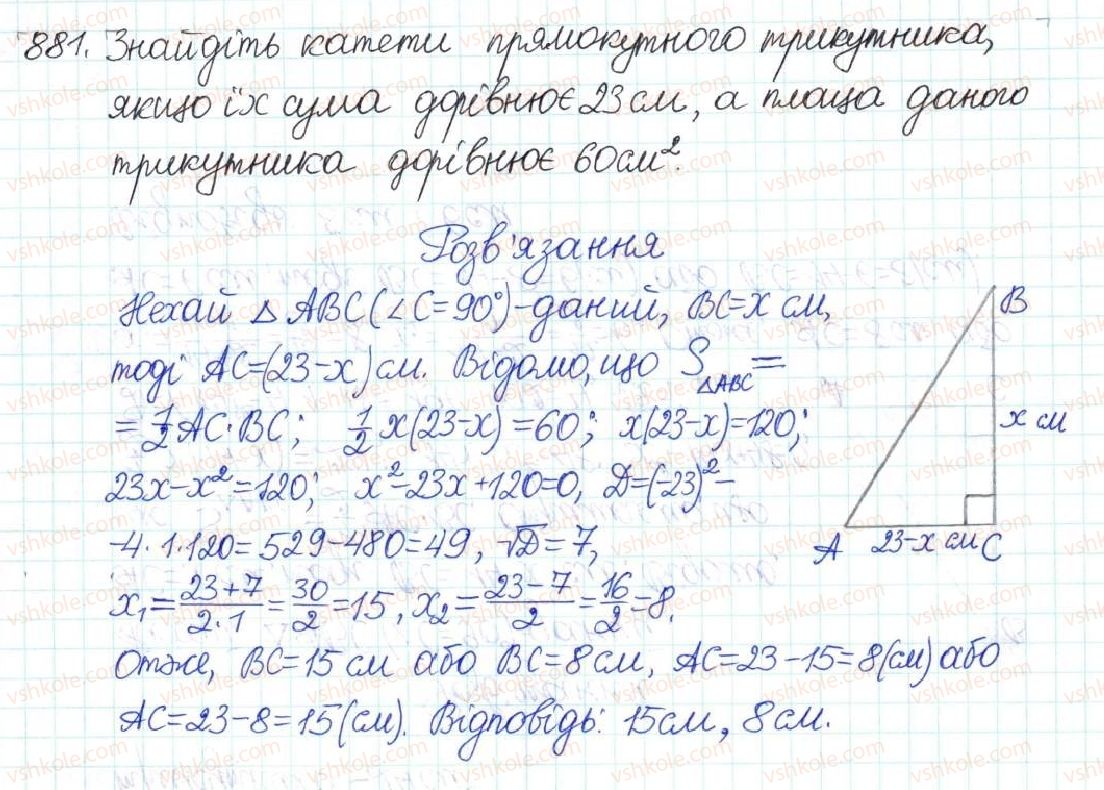 881. Знайдіть катети прямокутного трикутника,
якщо їх сума дорівнює 23 см, а площа даного
трикутника дорівнює 60 см².
Розв'язання
Нехай △ABC (∠C=90°) – даний, BC=x см,
тоді AC=(23-x) см. Відомо, що S△ABC =
= 1/2 AC·BC; 1/2 x(23-x) =60; x(23-x)=120;
23x-x²=120; x²-23x+120=0, D=(-23)²-
-4·1·120=529-480=49, √D=7,
x₁=(23+7)/(2·1)=30/2=15, x₂=(23-7)/2=16/2=8.
Отже, BC=15 см або BC=8 см, AC=23-15=8(см) або
AC=23-8=15(см). Відповідь: 15 см, 8 см.
B
x см
A 23-x см C
vshkole.com